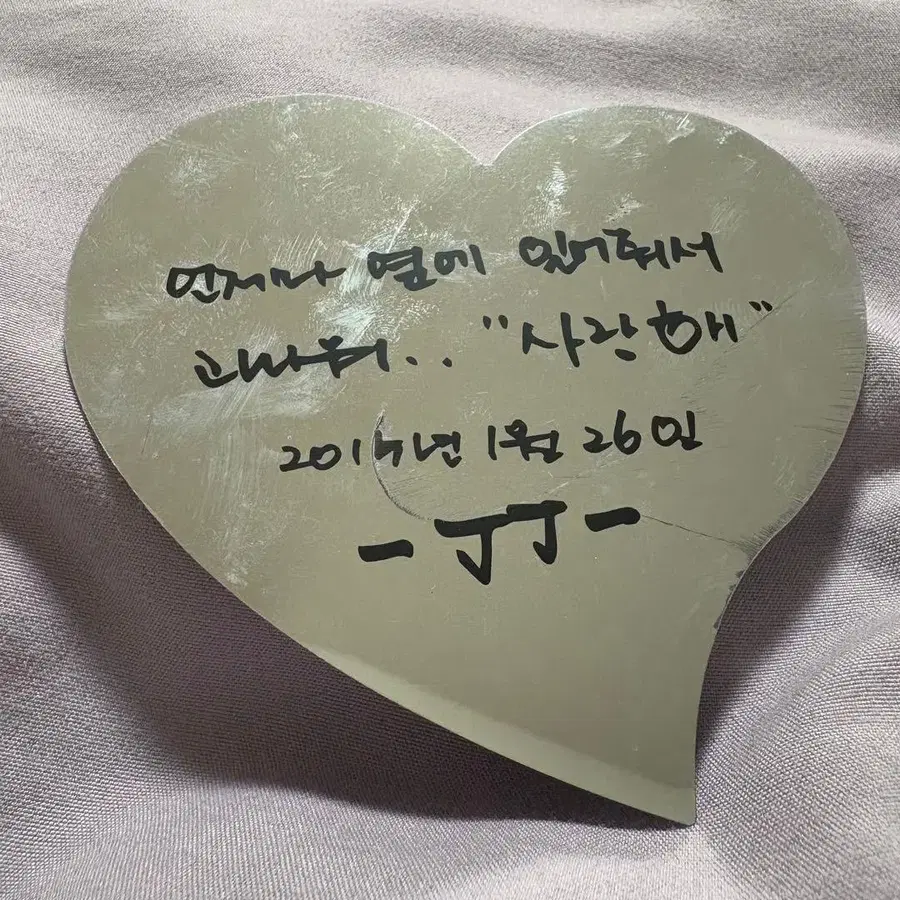 언제나 옆에 있어줘서
고마워.. "사랑해"
2015년 1월 26일
- JJ -